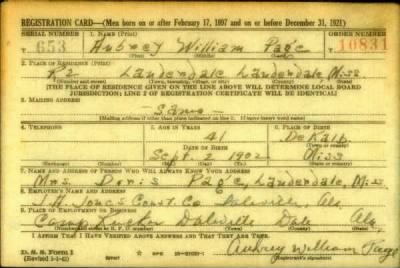 REGISTRATION CARD—(Men born on or after February 17, 1897 and on or before December 31, 1921)
SERIAL NUMBER 1. NAME (Print) ORDER NUMBER
T 653 Aubrey William Page T 10831
(First) (Middle) (Last)
2. PLACE OF RESIDENCE (Print)
R2 Lauderdale Lauderdale Miss
(Number and street) (Town, township, village, or city) (County) (State)
[THE PLACE OF RESIDENCE GIVEN ON THE LINE ABOVE WILL DETERMINE LOCAL BOARD
JURISDICTION; LINE 2 OF REGISTRATION CERTIFICATE WILL BE IDENTICAL]
3. MAILING ADDRESS
Same
(Mailing address if other than place indicated on line 2. If same insert word same)
4. TELEPHONE 5. AGE IN YEARS 6. PLACE OF BIRTH
41 DeKalb
DATE OF BIRTH (Town or county)
Sept. 1902 Miss
(Exchange) (Number) (Mo.) (Day) (Yr.) (State or country)
7. NAME AND ADDRESS OF PERSON WHO WILL ALWAYS KNOW YOUR ADDRESS
Mrs. Page, Lauderdale, Miss
8. EMPLOYER'S NAME AND ADDRESS
J.A. Jones Const. Co. Ala.
9. PLACE OF EMPLOYMENT OR BUSINESS
Camp Rucker Dale Ala
(Number and street or R. F. D. number) (Town) (County) (State)
I AFFIRM THAT I HAVE VERIFIED ABOVE ANSWERS AND THAT THEY ARE TRUE.
D. S. S. Form 1
Aubrey William Page
(Registrant's signature)